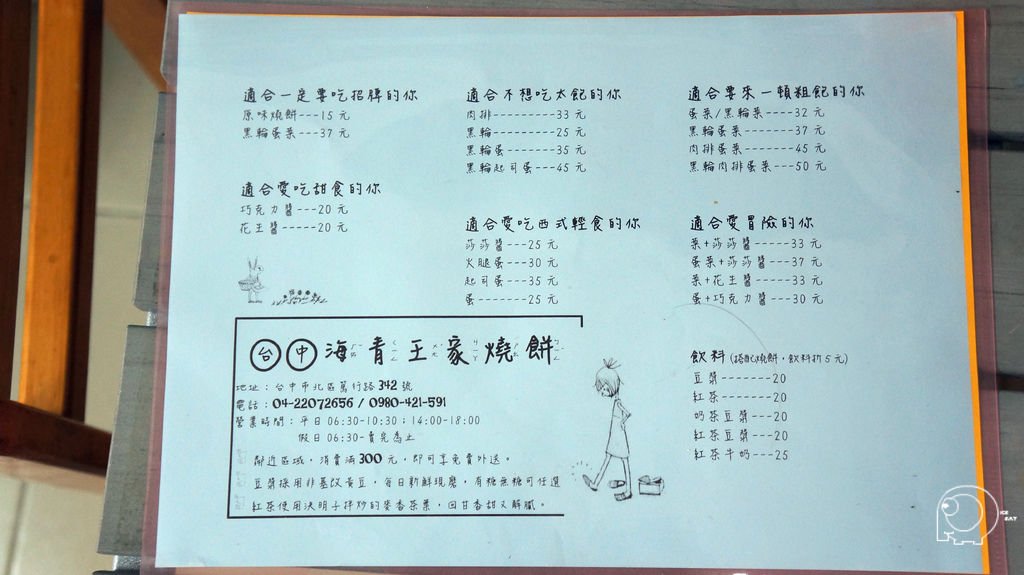 適合一定要吃招牌的你
原味燒餅---15 元
黑輪蛋菜---37 元
適合愛吃甜食的你
巧克力醬---20 元
花生醬-----20 元
適合不想吃太飽的你
肉排---------33 元
黑輪---------25 元
黑輪蛋-------35 元
黑輪起司蛋---45 元
適合愛吃西式輕食的你
莎莎醬---25 元
火腿蛋---30 元
起司蛋---35 元
蛋--------25 元
適合要來一頓粗飽的你
蛋菜/黑輪菜----32 元
黑輪蛋菜-------37 元
肉排蛋菜-------45 元
黑輪肉排蛋菜---50 元
適合愛冒險的你
菜+莎莎醬-----33 元
蛋菜+莎莎醬---37 元
菜+花生醬-----33 元
蛋+巧克力醬---30 元
飲料(搭配燒餅,飲料折5元)
豆漿-------20
紅茶-------20
奶茶豆漿---20
紅茶豆漿---20
紅茶牛奶---25
台中海青王家燒餅
地址:台中市北區篤行路 342 號
電話:04-22072656 / 0980-421-591
營業時間:平日 06:30-10:30;14:00-18:00
假日 06:30-賣完為止
鄰近區域,消費滿300元,即可享免費外送。
豆漿採用非基改黃豆,每日新鮮現磨,有糖無糖可任選
紅茶使用決明子拌炒的麥香茶葉,回甘香甜又解膩。
ICE
EAT